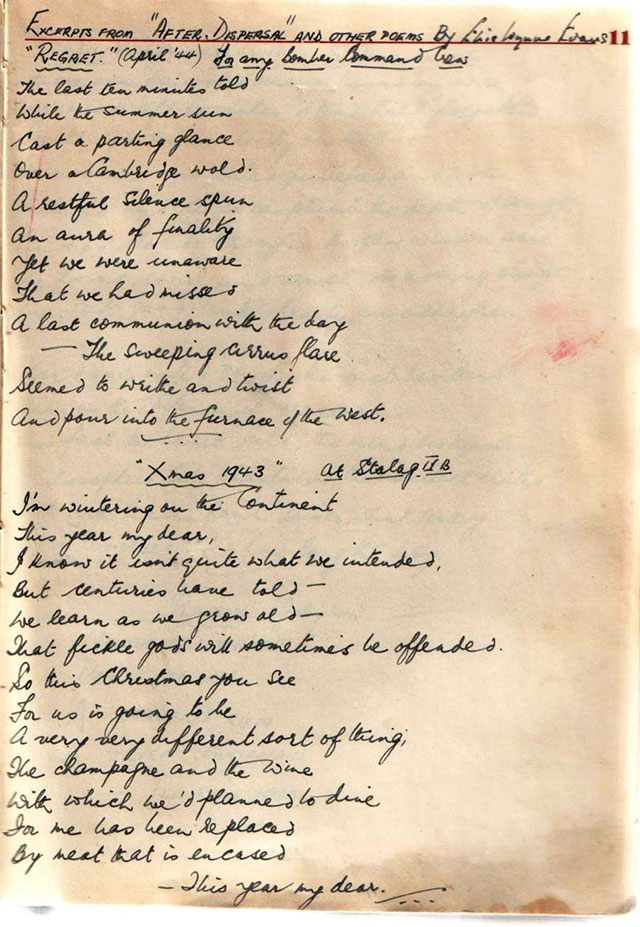 EXCERPTS FROM "AFTER DISPERSAL" AND OTHER POEMS By Evans 11
"REGRET." (April '44) For any bomber Command Crew
The last ten minutes told
While the summer sun
Cast a parting glance
Over a Cambridge wold.
A restful silence spun
An aura of finality
Yet we were unaware
That we had missed
A last communion with the day
— The sweeping cirrus flare
Seemed to writhe and twist
And pour into the furnace of the West.
"Xmas 1943" At Stalag IVB
I'm wintering on the Continent
This year my dear,
I know it isn't quite what we intended,
But centuries have told —
We learn as we grow old —
That fickle gods will sometimes be offended.
So this Christmas you see
For us is going to be
A very very different sort of thing;
The champagne and the wine
With which we'd planned to dine
For me has been replaced
By meat that is encased
— This year my dear.